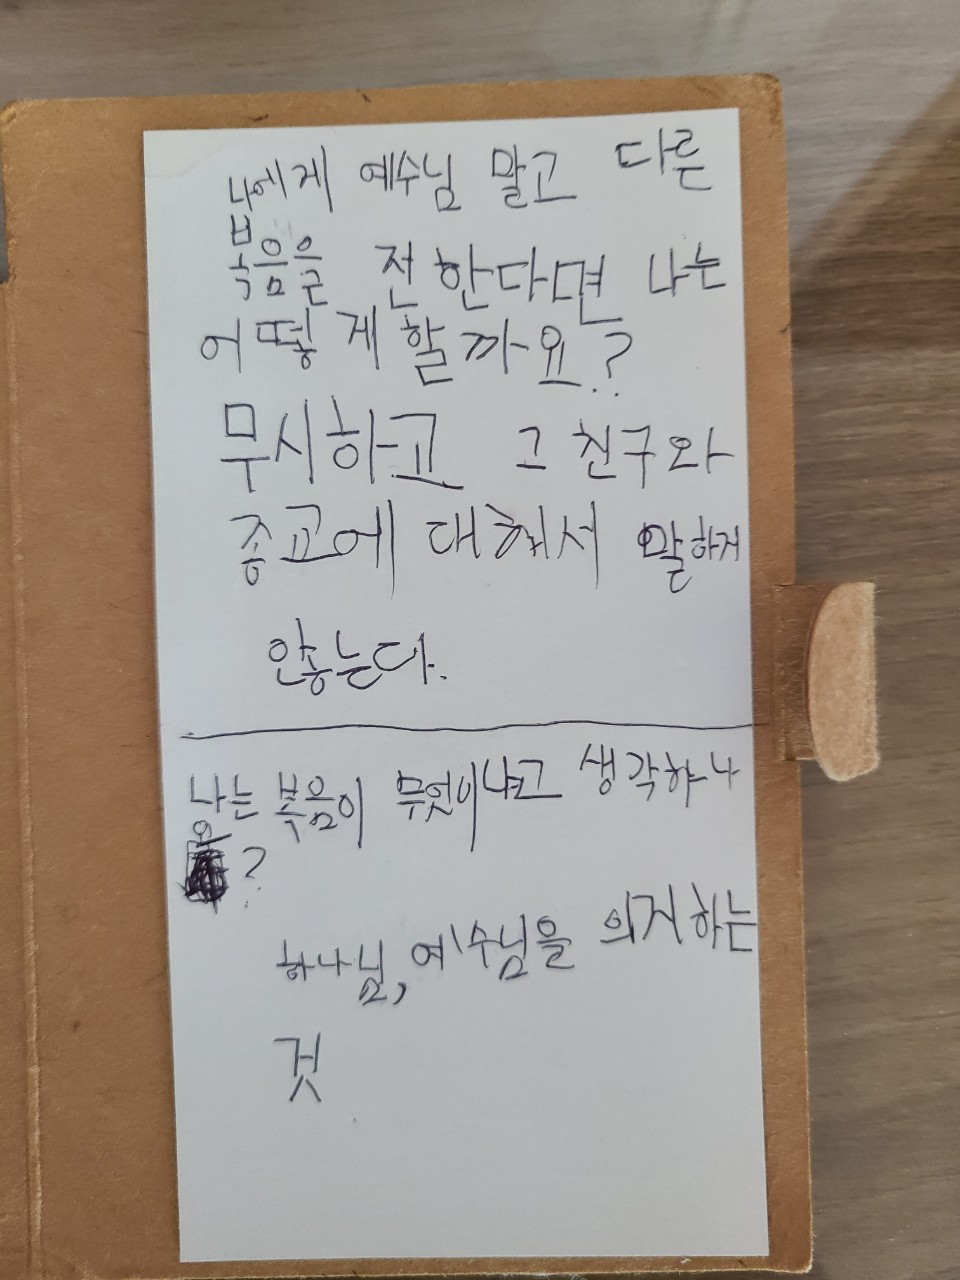 나에게 예수님 말고 다른
복음을 전한다면 나는
어떻게할까요?
무시하고 그 친구와
종교에 대해서 말하지
안흥는다.
나는 복음이 무엇이냐고 생각하나
요?
하나님, 예수님을 의지하는
것